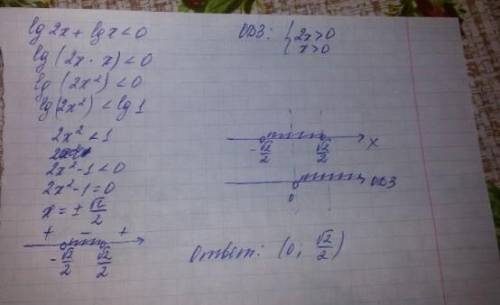 lg 2x + lg x < 0
lg (2x · x) < 0
lg (2x²) < 0
lg (2x²) < lg 1
2x² < 1
2x² - 1 < 0
2x² - 1 = 0
x = ± √2/2
+ - +
-√2/2 √2/2
ОДЗ: { 2x > 0
x > 0
-√2/2 √2/2 x
0 ОДЗ
Ответ: (0, √2/2)